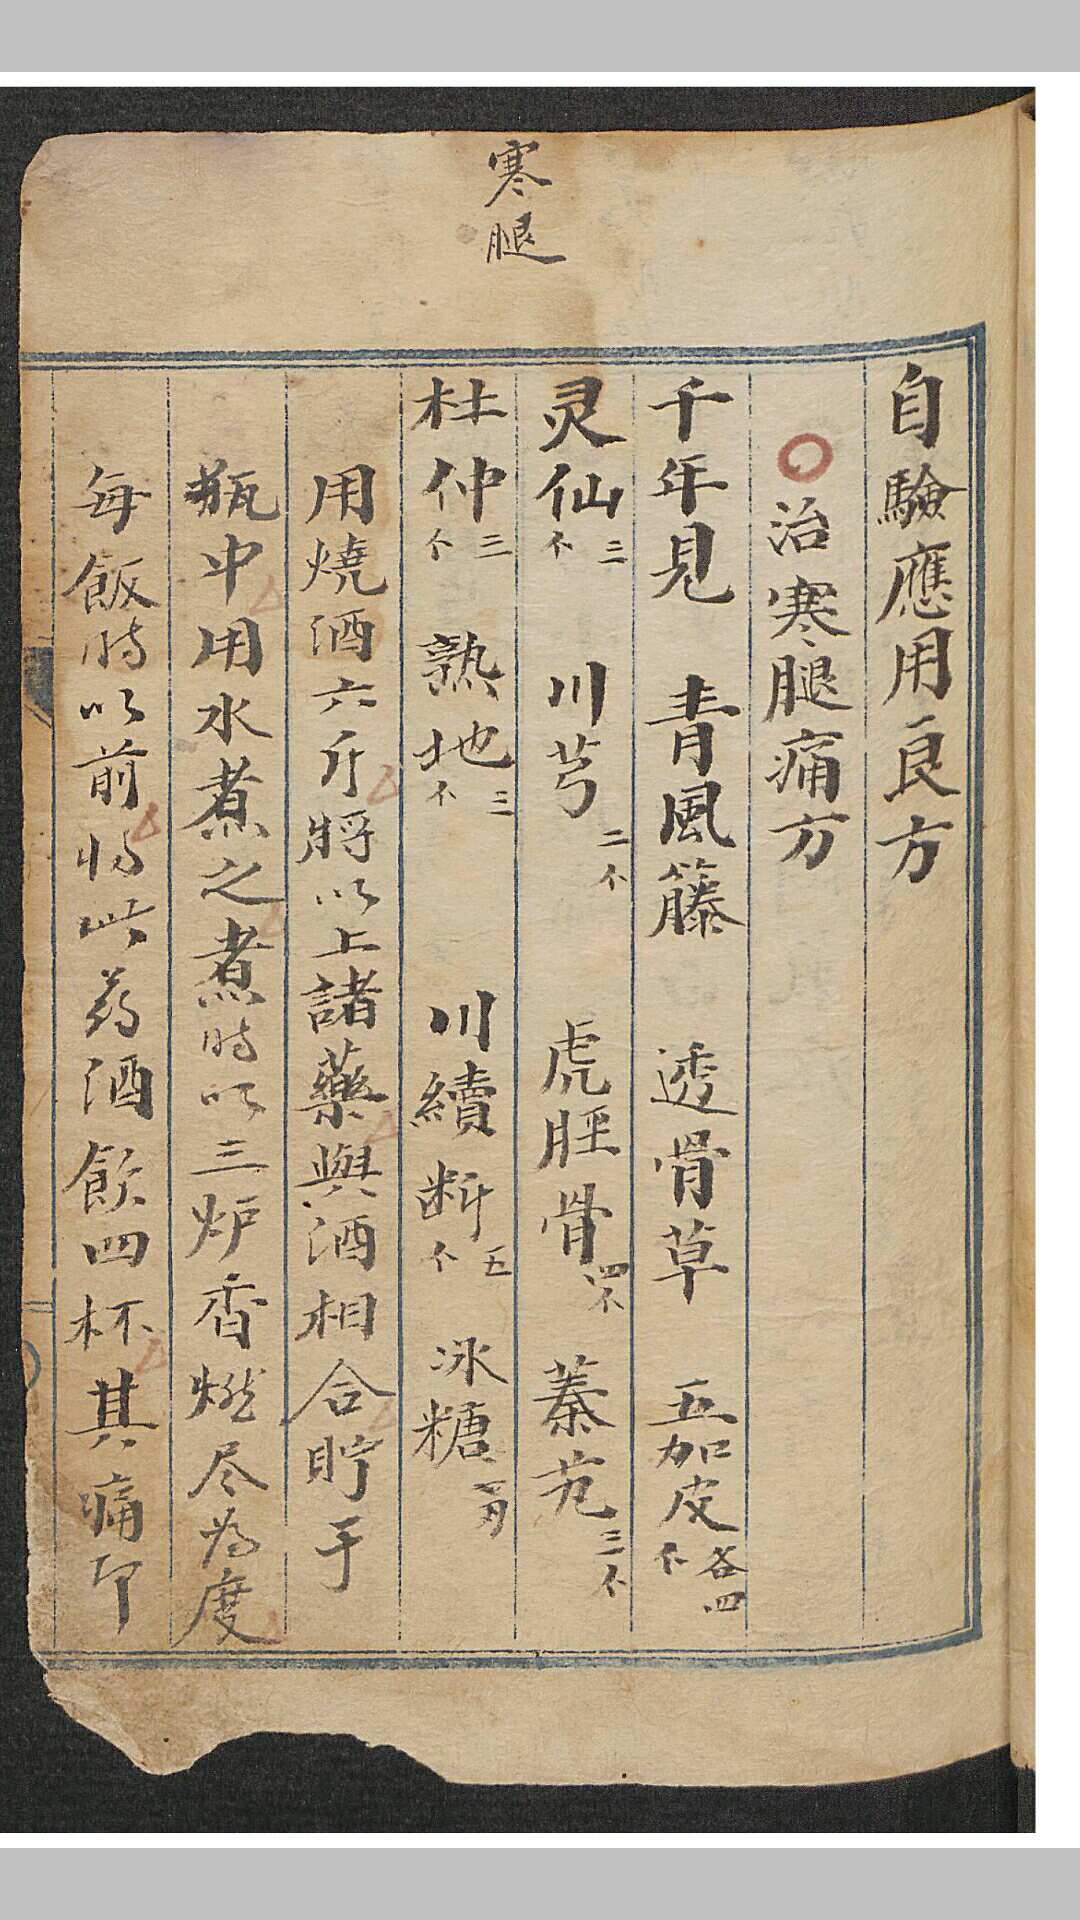 寒腿
自驗應用良方
治寒腿痛方
千年見 青風籐 透骨草 五加皮各四个
灵仙三个 川芎二个 虎脛骨四个 蓁艽三个
杜仲三个 熟地三个 川續断五个 冰糖
用燒酒六斤將以上諸藥與酒相合貯于
瓶中用水煮之煮時以三炉香燃尽為度
每飯時以前将此药酒飲四杯其痛即